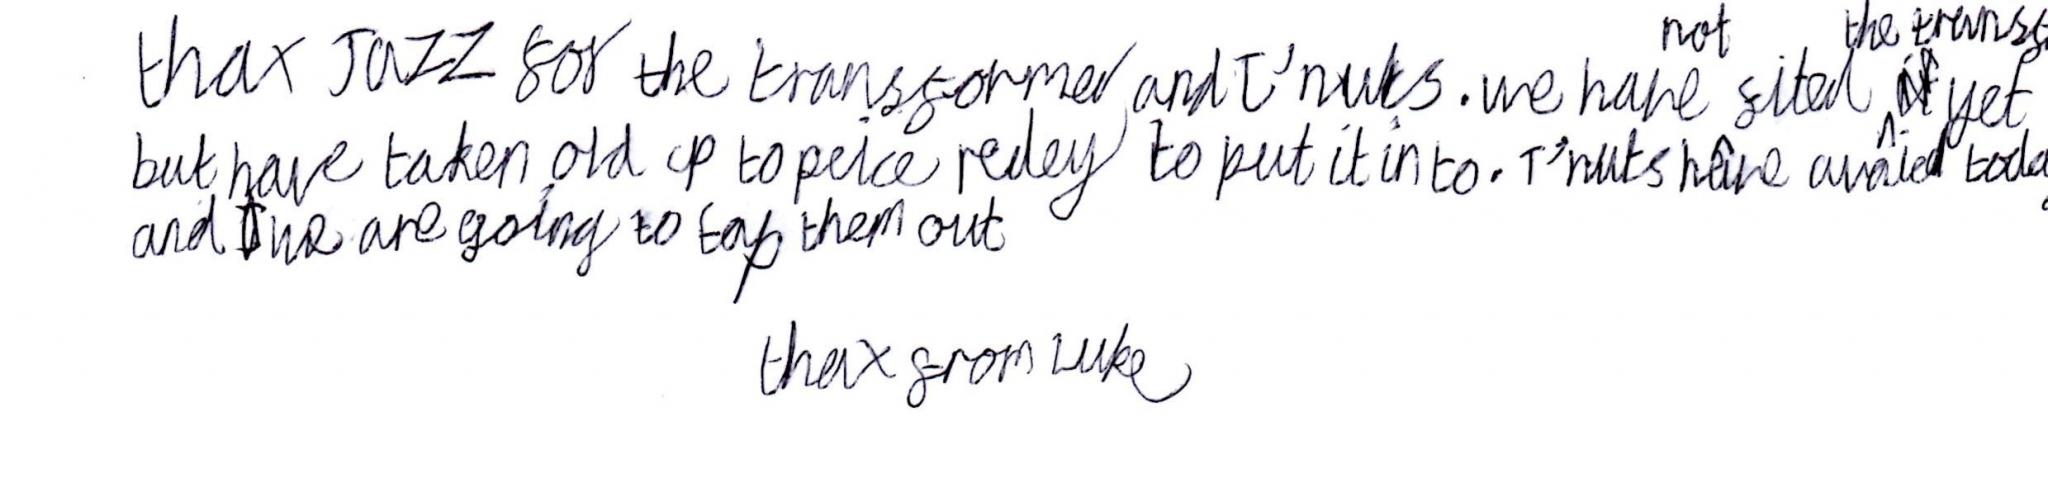 thax JAZZ for the transformer and T'nuts. we have not fited the transf yet
but have taken old cp to peice redey to put it in to. T'nuts have avaied today
and we are going to tap them out
thax from Luke